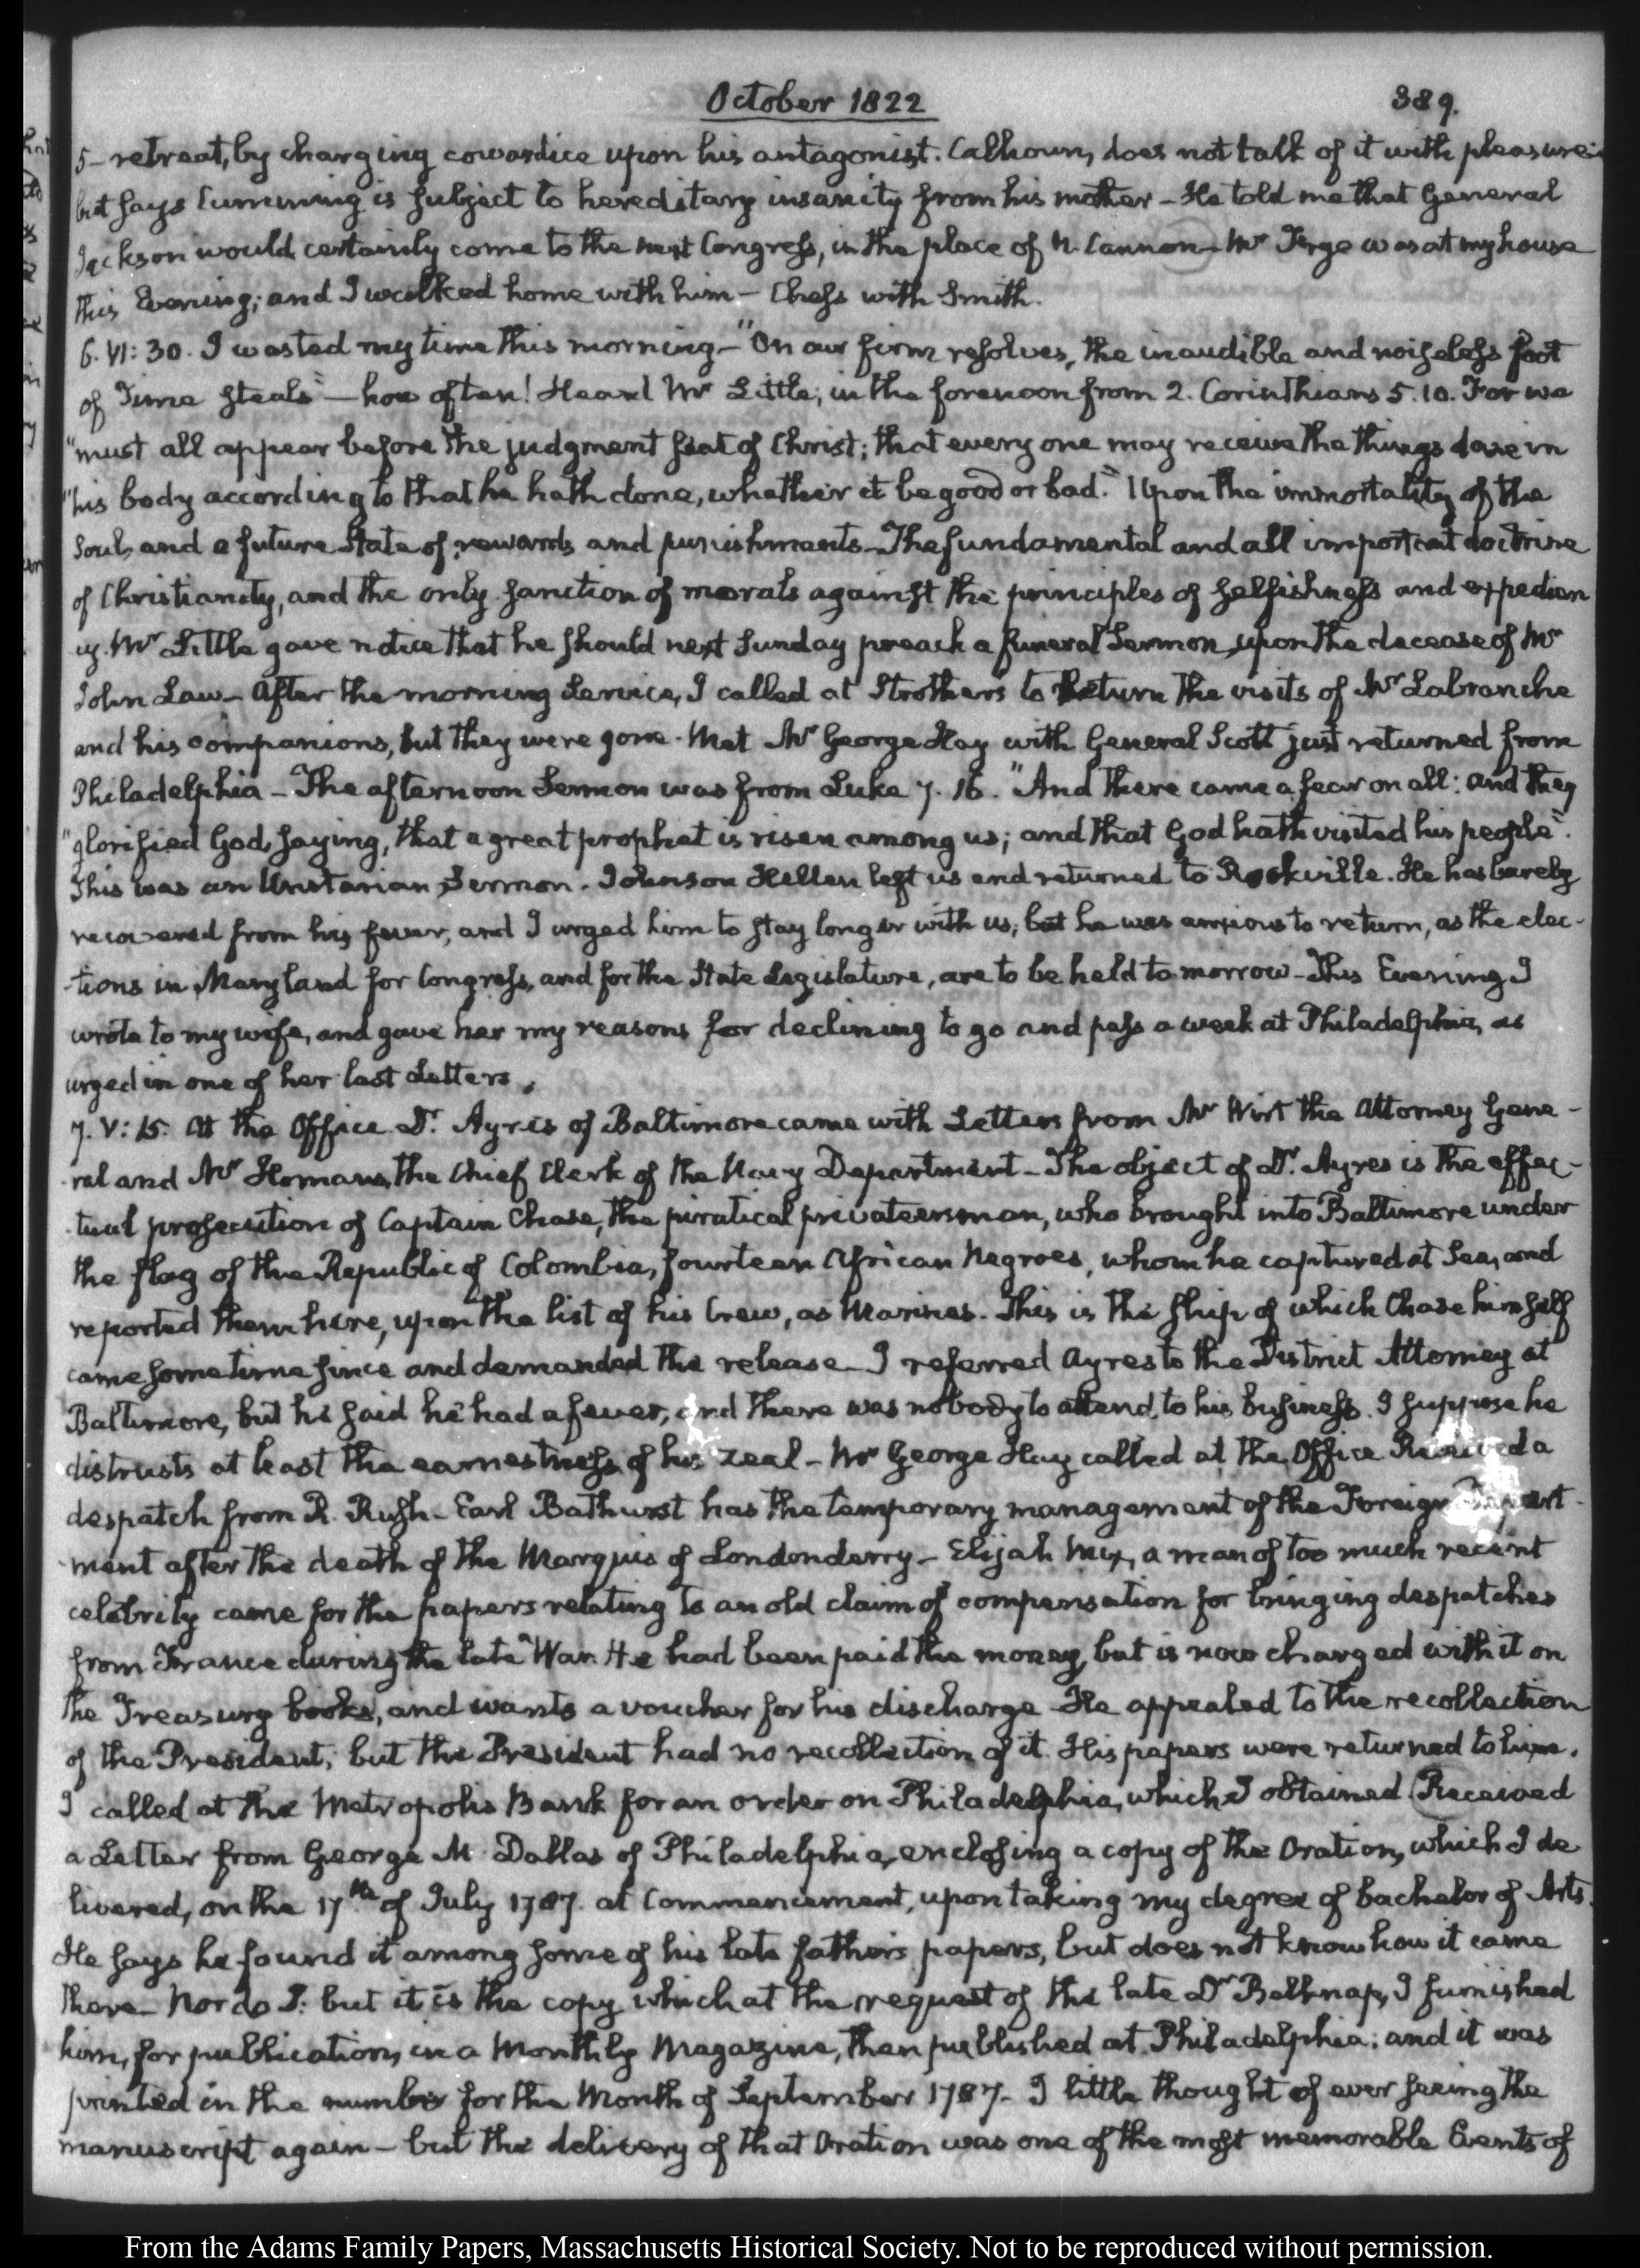 October 1822
389.
5– retreat, by charging cowardice upon his antagonist. Calhoun, does not talk of it with pleasure;
but says Cumming is subject to hereditary insanity from his mother – He told me that General
Jackson would certainly come to the next Congress, in the place of N. Cannon – Mr Forge was at my house
this Evening; and I walked home with him – Chess with Smith.
6. VI: 30. I wasted my time this morning – "On our firm resolves, the inaudible and noiseless foot
of Time steals" – how often! Heard Mr Little, in the forenoon from 2. Corinthians 5. 10. For we
"must all appear before the judgment seat of Christ; that every one may receive the things done in
"his body according to that he hath done, whether it be good or bad." Upon the immortality of the
Soul, and a future State of rewards and punishments – The fundamental and all important doctrine
of Christianity, and the only sanction of morals against the principles of selfishness and expedien
cy. Mr Little gave notice that he should next Sunday preach a funeral Sermon, upon the decease of Mr
John Law – After the morning Service, I called at Strothers to Return the visits of Mr Labranche
and his companions, but they were gone – Met Mr George Hay with General Scott just returned from
Philadelphia – The afternoon Sermon was from Luke 7. 16. "And there came a fear on all: and they
"glorified God, saying, that a great prophet is risen among us; and that God hath visited his people".
This was an Unitarian Sermon. Johnson Hellen left us and returned to Rockville. He has barely
recovered from his fever, and I urged him to stay longer with us, but he was anxious to return, as the elec-
-tions in Maryland for Congress, and for the State Legislature, are to be held to morrow – This Evening I
wrote to my wife, and gave her my reasons for declining to go and pass a week at Philadelphia, as
urged in one of her last Letters.
7. V: 15. At the Office Dr. Ayres of Baltimore came with Letters from Mr Wirt the Attorney Gene-
-ral and Mr Homans, the Chief Clerk of the Navy Department – The object of Dr. Ayres is the effec-
-tual prosecution of Captain Chase, the piratical privateersman, who brought into Baltimore under
the flag of the Republic of Colombia, fourteen African Negroes, whom he captured at Sea, and
reported them here, upon the list of his Crew, as Marines. This is the ship of which Chase himself
came sometime since and demanded the release – I referred Ayres to the District Attorney at
Baltimore, but he said he had a fever, and there was nobody to attend to his business. I suppose he
distrusts at least the earnestness of his zeal – Mr George Hay called at the Office Received a
despatch from R. Rush – Earl Bathurst has the temporary management of the Foreign Depart-
-ment after the death of the Marquis of Londonderry – Elijah Mix, a man of too much recent
celebrity came for the papers relating to an old claim of compensation for bringing despatches
from France during the late War. He had been paid the money, but is now charged with it on
the Treasury books, and wants a voucher for his discharge – He appealed to the recollection
of the President, but the President had no recollection of it. His papers were returned to him.
I called at the Metropolis Bank for an order on Philadelphia, which I obtained. Received
a Letter from George M. Dallas of Philadelphia, enclosing a copy of the Oration, which I de
livered, on the 17.th of July 1787. at Commencement, upon taking my degree of bachelor of Arts.
He says he found it among some of his late father's papers, but does not know how it came
there – Nor do I: but it is the copy which at the request of the late Dr Belknap, I furnished
him, for publication, in a Monthly Magazine, then published at Philadelphia; and it was
printed in the number for the Month of September 1787 – I little thought of ever seeing the
manuscript again – but the delivery of that Oration was one of the most memorable Events of
From the Adams Family Papers, Massachusetts Historical Society. Not to be reproduced without permission.